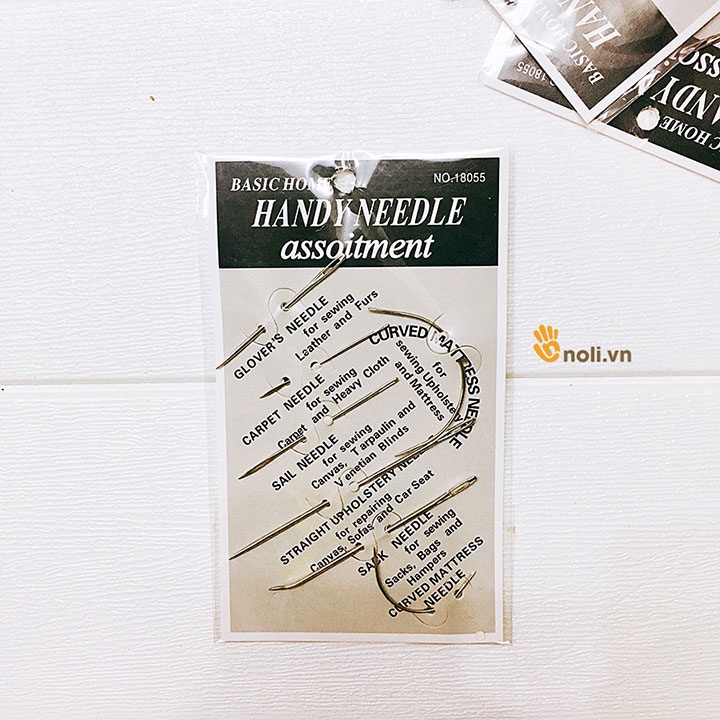 BASIC HOME
NO.18055
HANDY NEEDLE
assoitment
GLOVER'S NEEDLE
for sewing
Leather and Furs
CURVED MATTRESS NEEDLE
for
sewing Upholstery
and Mattress
CARPET NEEDLE
for sewing
Carpet and Heavy Cloth
SAIL NEEDLE
for sewing
Canvas, Tarpaulin and
Venetian Blinds
STRAIGHT UPHOLSTERY NEEDLE
for repairing
Canvas, Sofas and Car Seat
SACK NEEDLE
for sewing
Sacks, Bags and
Hampers
CURVED MATTRESS
NEEDLE
noli.vn
BASIC HOME
HAN
18055
HANDY N
HOME